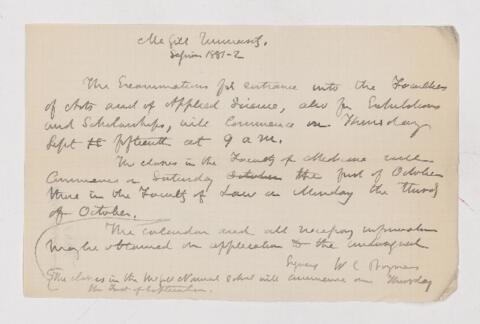 McGill University.
Session 1881-2
The Examinations for entrance into the Faculties
of Arts and of Applied Science, also for Exhibitions
and Scholarships, will commence on Thursday
Sept fifteenth at 9 a.m.
The classes in the Faculty of Medicine will
commence on Saturday October the first of October
those in the Faculty of Law on Monday the third
of October.
The calendar and all necessary information
may be obtained on application to the undersigned
Signed W C Baynes
The classes in the McGill Normal School will commence on Thursday
the first of September.